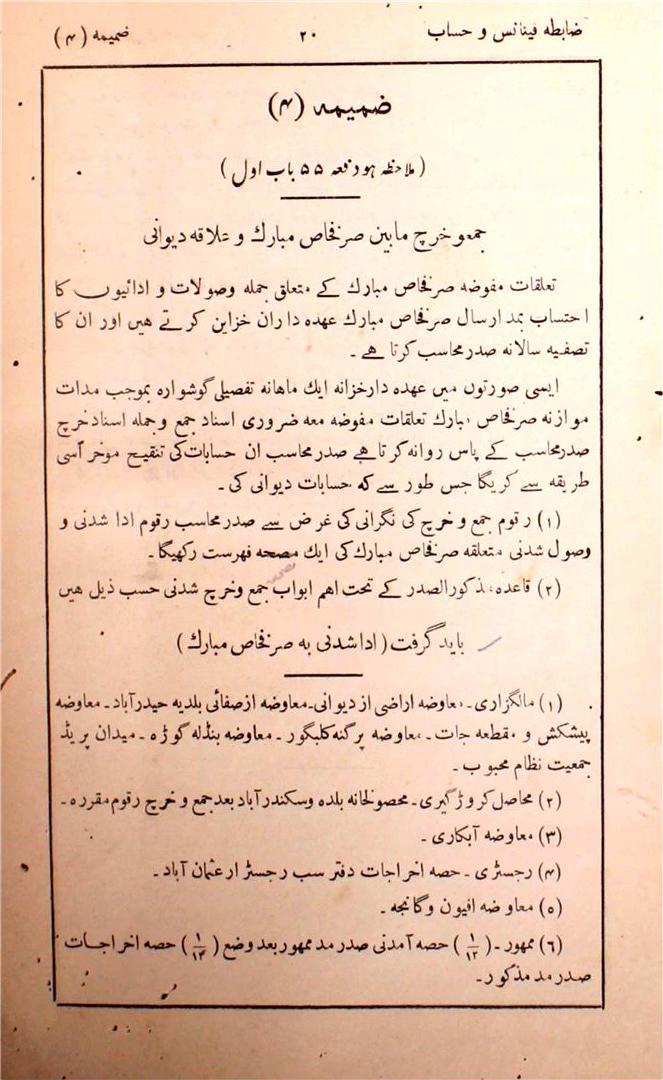 ضابطه فینانس و حساب ۲۰ ضمیمه (۴)
ضمیمه (۴)
(ملاحظه هو دفعه ۵۵ باب اول)
جمع و خرچ مابین صرفخاص مبارك و علاقه دیوانی
تعلقات مفوضه صرفخاص مبارك کے متعلق جمله وصولات و ادائیوں کا
احتساب بمد ارسال صرفخاص مبارك عهده داران خزاین کرتے هیں اور ان کا
تصفیه سالانه صدر محاسب کرتا هے ۔
ایسی صورتوں میں عهده دار خزانه ایك ماهانه تفصیلی گوشواره بموجب مدات
موازنه صرفخاص مبارك تعلقات مفوضه معه ضروری اسناد جمع و جمله اسناد خرچ
صدر محاسب کے پاس روانه کرتا هے صدر محاسب ان حسابات کی تنقیح موخر آسی
طریقه سے کریگا جس طور سے که حسابات دیوانی کی ۔
(۱) رقوم جمع و خرچ کی نگرانی کی غرض سے صدر محاسب رقوم ادا شدنی و
وصول شدنی متعلقه صرفخاص مبارك کی ایك مصحه فهرست رکهیگا ۔
(۲) قاعده مذکور الصدر کے تحت اهم ابواب جمع و خرچ شدنی حسب ذیل هیں
باید گرفت (ادا شدنی به صرفخاص مبارك)
(۱) مالگزاری ۔ معاوضه اراضی از دیوانی ۔ معاوضه از صفائی بلدیه حیدرآباد ۔ معاوضه
پیشکش و مقطعه جات ۔ معاوضه پرگنه کلبگور ۔ معاوضه بنڈله گوڑه ۔ میدان پریڈ
جمعیت نظام محبوب ۔
(۲) محاصل کروڑگیری ۔ محصولخانه بلده و سکندرآباد بعد جمع و خرچ رقوم مقرره ۔
(۳) معاوضه آبکاری ۔
(۴) رجسٹری ۔ حصه اخراجات دفتر سب رجسٹرار عثمان آباد ۔
(۵) معاوضه افیون و گانجه ۔
(٦) ممهور ۔ (۱/۱۲) حصه آمدنی صدر مد ممهور بعد وضع (۱/۱۳) حصه اخراجات
صدر مد مذکور ۔